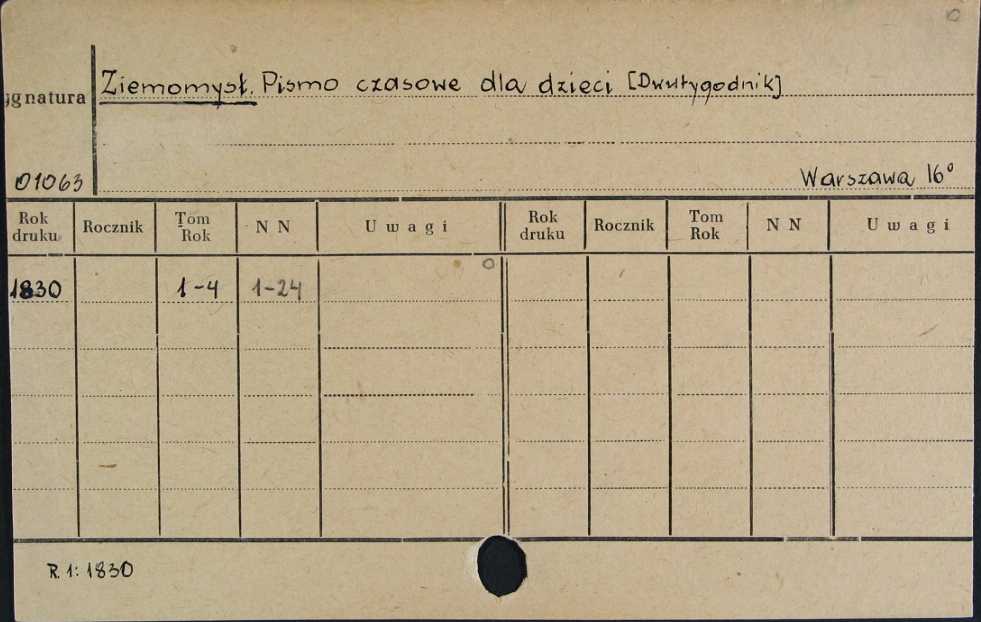 Ziemomysł. Pismo czasowe dla dzieci [Dwutygodnik]
ygnatura
01063
Warszawa 16°
Rok druku Rocznik Tom Rok N N Uwagi Rok druku Rocznik Tom Rok N N Uwagi
1830 1-4 1-24
R. 1: 1830